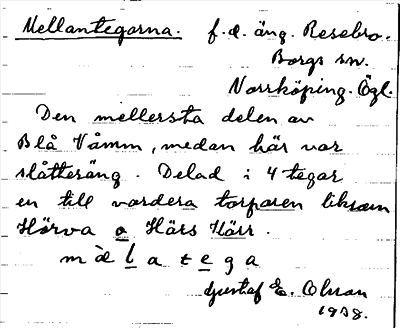 Mellantegarna. f.d. äng. Resebro.
Borgs sn.
Norrköping. Ögl.
Den mellersta delen av
Blå Våmm, medan här var
slåtteräng. Delad i 4 tegar
en till vardera torparen liksom
Hörva o Härs Kärr.
m à l a t e g a
Gustaf E. Olsson
1938.